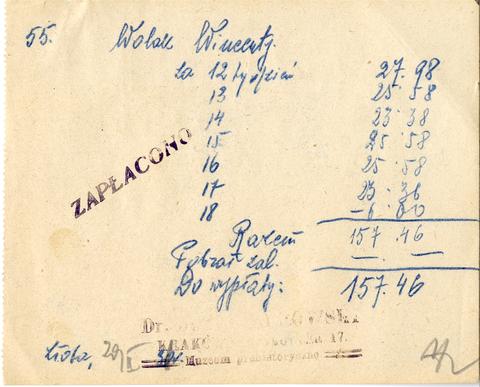 55. Wolak Wincenty.
za 12 tydzień 27.98
13 25.58
14 23.38
15 25.58
16 25.58
17 23.36
18 —6.00
ZAPŁACONO
Razem 157.46
Pobrał zal. — . —
Do wypłaty: 157.46
Dr.
KRAKÓW 17.
Muzeum prehistoryczne
Złota, 29/I